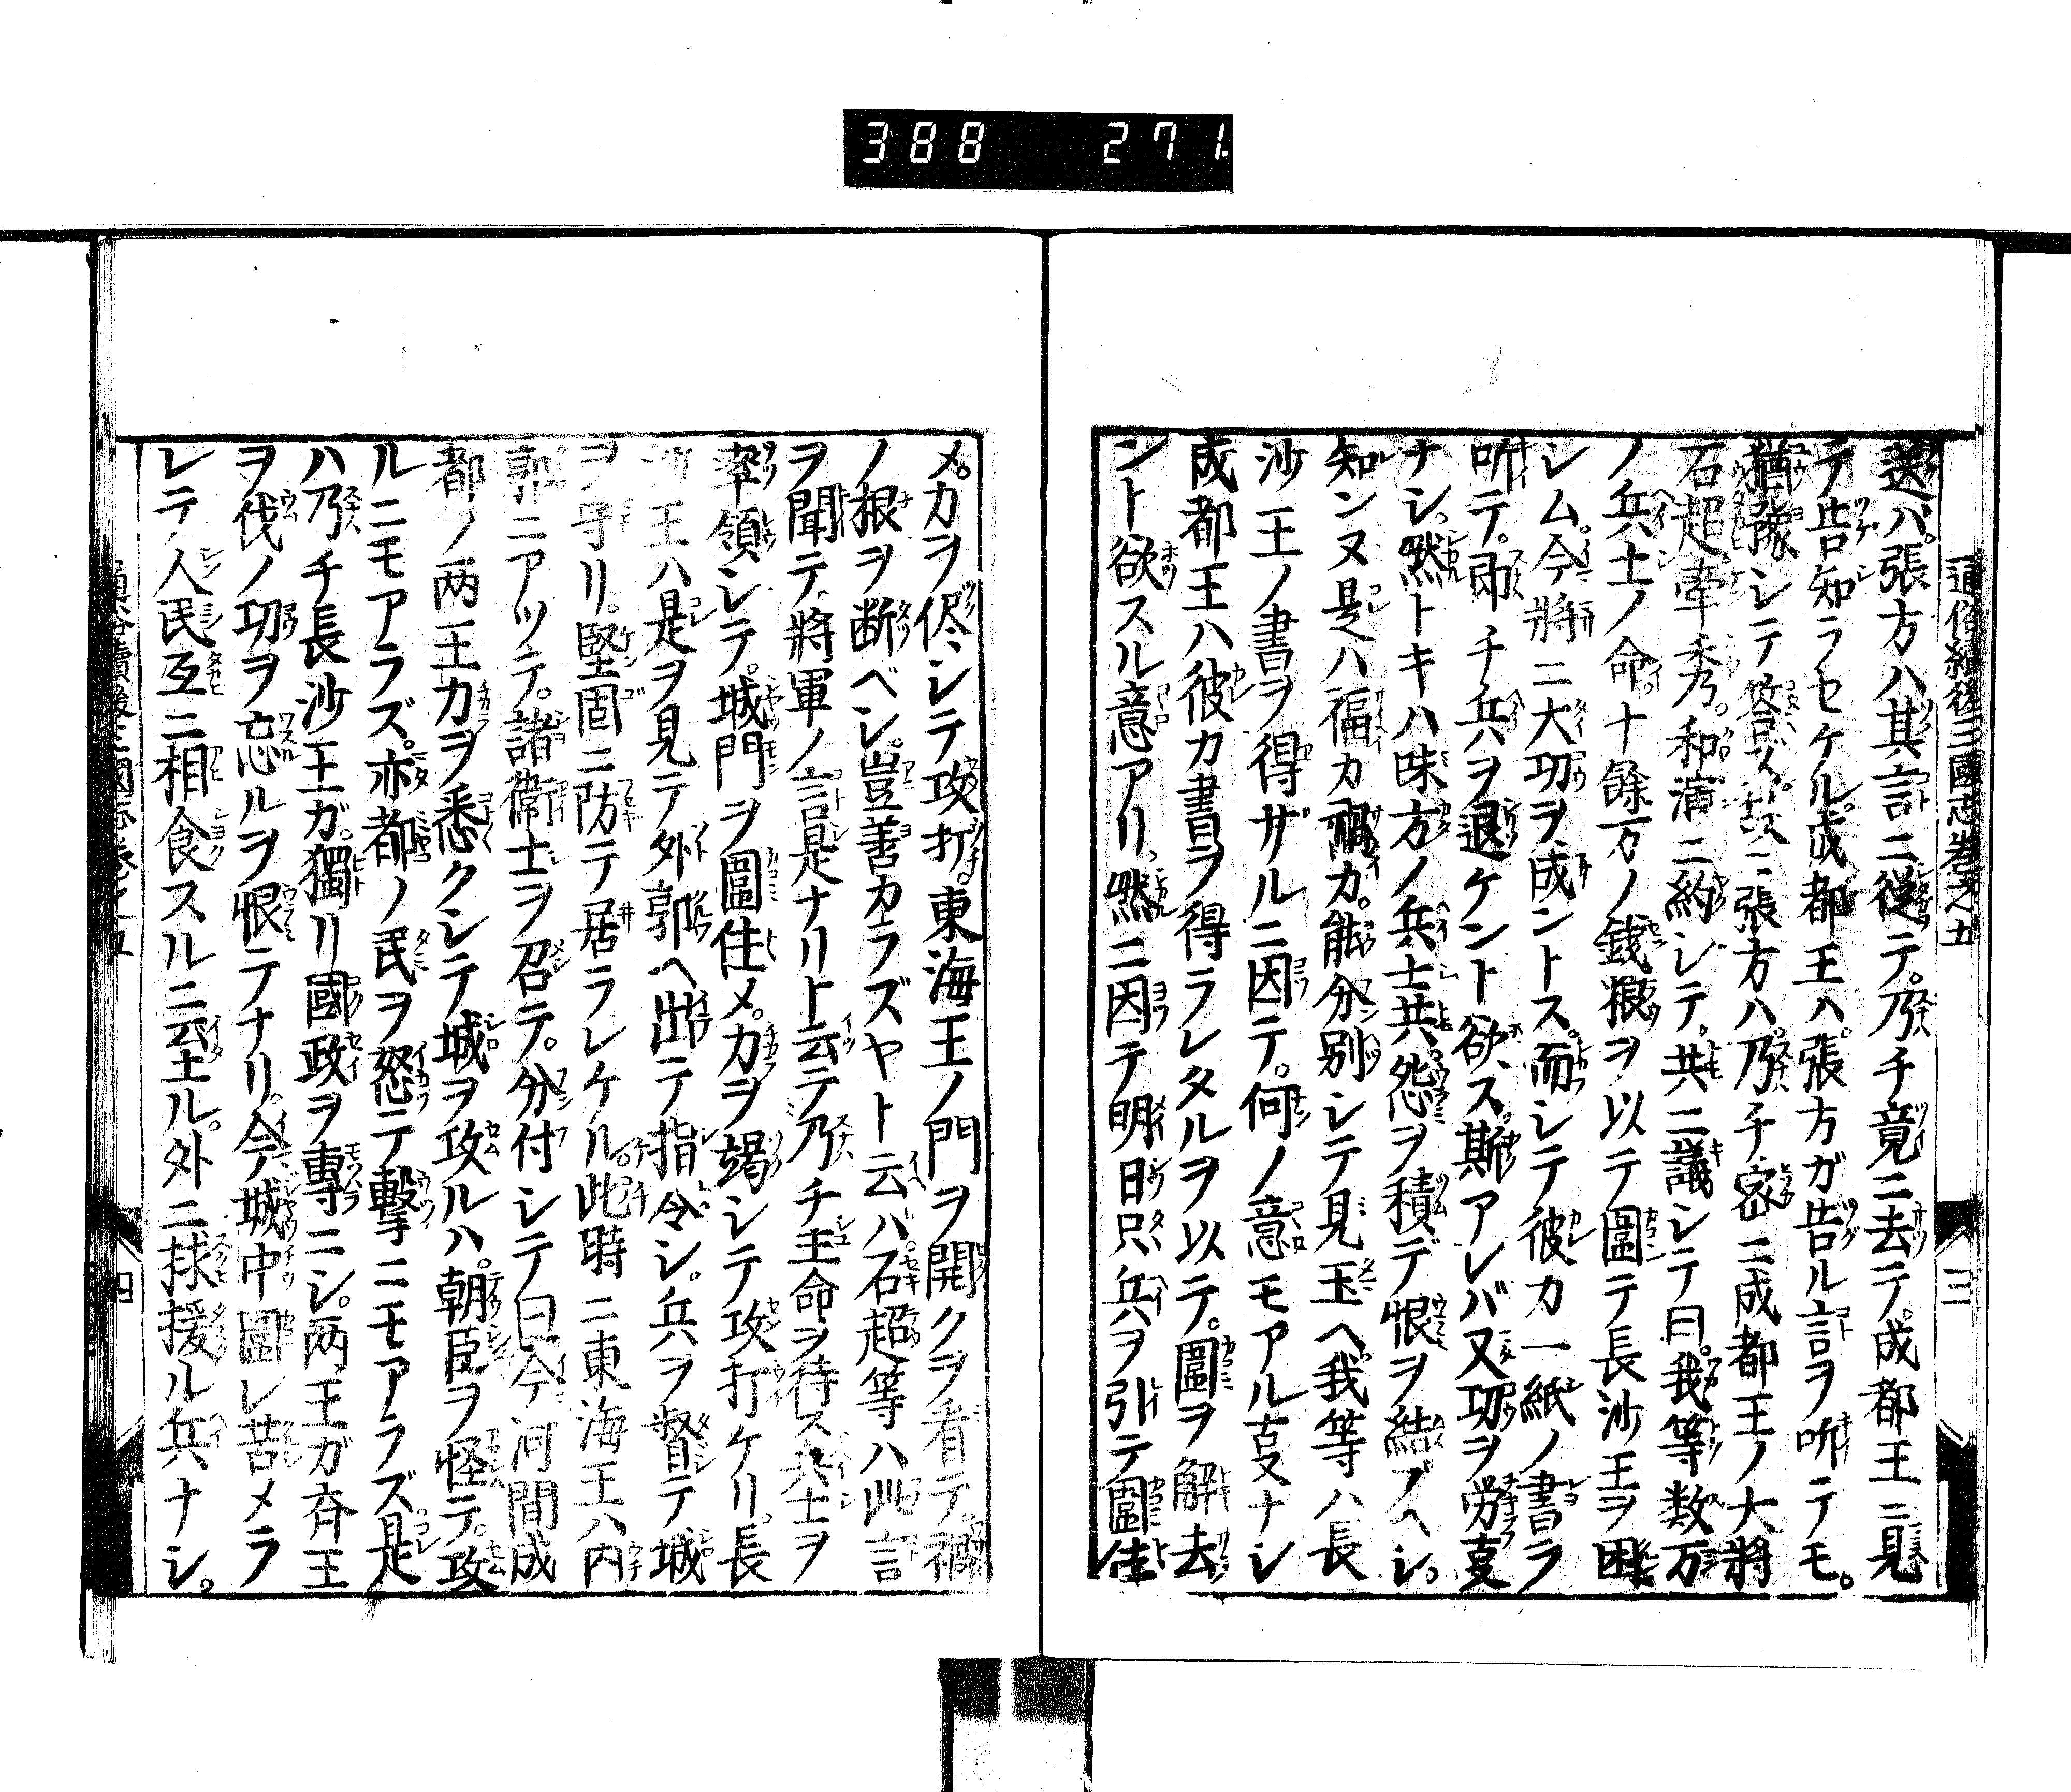 388 271
通俗續後三國志巻之五
三
送バ。張方ハ其言ニ從テ。乃チ竟ニ去テ。成都王ニ見
テ告知ラセケル。成都王ハ。張方ガ告ル言ヲ听テモ。
猶豫シテ答ズ。故ニ張方ハ。乃チ密ニ成都王ノ大將
石超牽秀。和演ニ約シテ。共ニ議シテ曰。我等数万
ノ兵士ノ命十餘万ノ錢粮ヲ以テ圍テ長沙王ヲ困
シム。今將ニ大功ヲ成ントス。而シテ彼カ一紙ノ書ヲ
听テ。即チ兵ヲ退ケント欲ス。斯アレバ又功ヲ労㕝
ナシ。然トキハ味方ノ兵士共怨ヲ積デ恨ヲ結ブヘシ。
知ンヌ是ハ福カ禍カ。能分別シテ見玉ヘ。我等ハ長
沙王ノ書ヲ得ザルニ因テ。何ノ意モアル㕝ナシ
成都王ハ彼カ書ヲ得ラレタルヲ以テ。圍ヲ解去
ント欲スル意アリ。然ニ因テ明日只兵ヲ引テ圍住
メ。力ヲ侭シテ攻打。東海王ノ門ヲ開クヲ看テ。禍
ノ根ヲ断ベシ。豈善カラズヤト云バ。石超等ハ此言
ヲ聞テ。將軍ノ言是ナリト云テ乃チ王命ヲ待ス。兵士ヲ
率領シテ。城門ヲ圍住メ。力ヲ竭シテ攻打ケリ。長
沙王ハ是ヲ見テ外郭ヘ出テ指令シ。兵ヲ督テ城
ヲ守リ。堅固ニ防テ居ラレケル此時ニ東海王ハ内
郭ニアツテ。諸衛士ヲ召テ。分付シテ曰今河間成
都ノ両王力ヲ悉クシテ城ヲ攻ルハ。朝臣ヲ怪テ。攻
ルニモアラズ。亦都ノ民ヲ怒テ撃ニモアラズ。是
ハ乃チ長沙王ガ。獨リ國政ヲ專ニシ。両王ガ斉王
ヲ伐ノ功ヲ忘ルヲ恨テナリ。今城中圍レ苦メラ
レテ人民互ニ相食スルニ至ル。外ニ救援ル兵ナシ。
通俗續後三國志巻之五
四